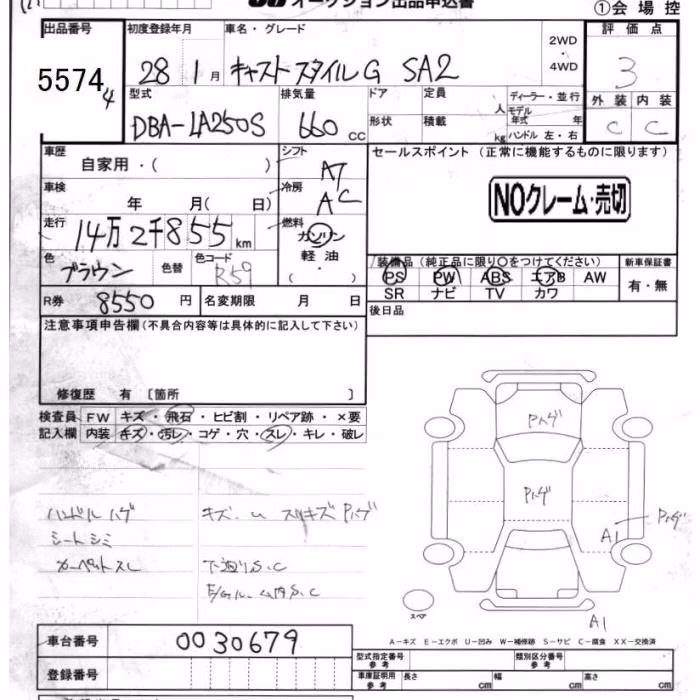 オークション出品申込書
①会場控
出品番号 初度登録年月 車名・グレード 評価点
5574 4 28 1月 キャスト スタイルG SA2 2WD・4WD 3
型式 排気量 ドア 定員 人 ディーラー・並行 外装 内装
DBA-LA250S 660cc 形状 積載 kg モデル年式 年 C C
ハンドル 左・右
車歴 シフト セールスポイント(正常に機能するものに限ります)
自家用・( ) AT
車検 冷房 NOクレーム・売切
年 月( 日) AC
走行 燃料
14万2千855km ガソリン
軽油
・
( )
色 色替 色コード 装備品(純正品に限り○をつけてください) 新車保証書
ブラウン R59 PS PW ABS エアB AW 有・無
SR ナビ TV カワ
R券 8550円 名変期限 月 日 後日品
注意事項申告欄(不具合内容等は具体的に記入して下さい)
修復歴 有 〔箇所 〕
検査員 FW キズ・飛石・ヒビ割・リペア跡・×要
記入欄 内装 キズ・汚レ・コゲ・穴・スレ・キレ・破レ
Pハゲ
Pハゲ
Pハゲ
A1
ハンドルハゲ キズ・u スリキズ Pハゲ
シートシミ
カーペットスレ 下廻りS.C
S.C
スペア
A1
A-キズ E-エクボ U-凹み W-補修跡 S-サビ C-腐食 XX-交換済
車台番号 0030679
型式指定番号 参考 類別区分番号 参考
登録番号 車庫証明用 参考 長さ cm 幅 cm 高さ cm